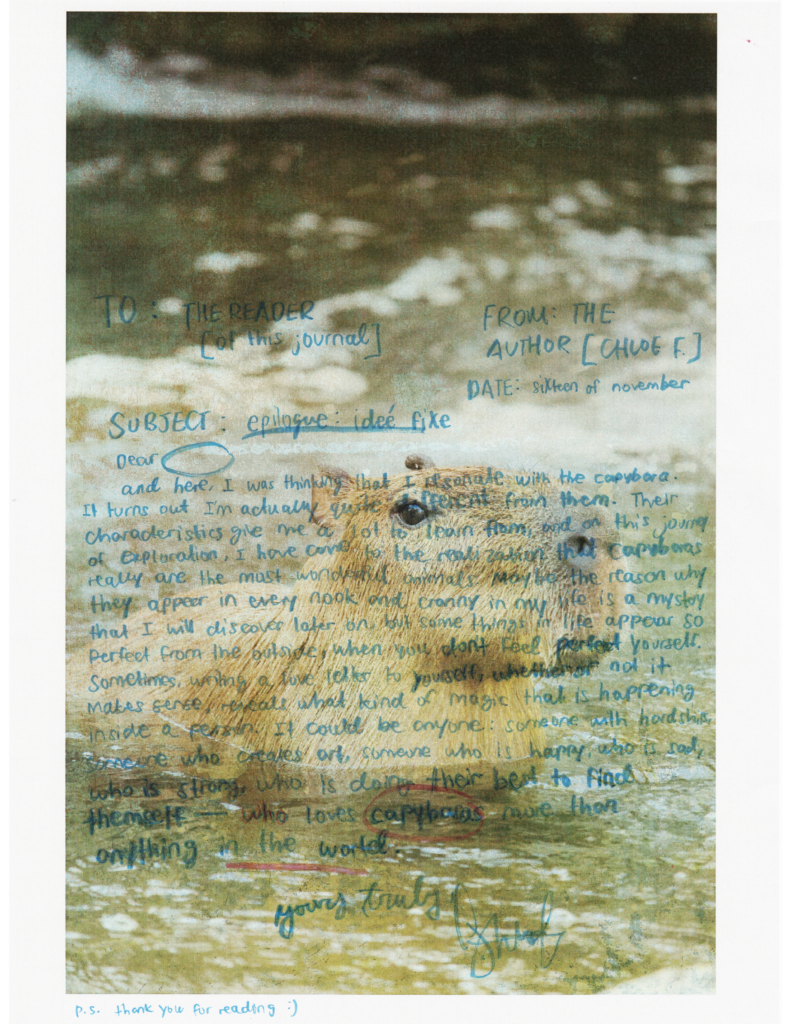 TO: THE READER
[of this journal]
FROM: THE
AUTHOR [CHLOE F.]
DATE: sixteen of november
SUBJECT: epilogue: ideé fixe
Dear
and here, I was thinking that I resonate with the capybara.
It turns out I'm actually quite different from them. Their
characteristics give me a lot to learn from, and on this journey
of exploration, I have come to the realization that capybaras
really are the most wonderful animals. Maybe the reason why
they appear in every nook and cranny in my life is a mystery
that I will discover later on, but some things in life appear so
perfect from the outside, when you don't feel perfect yourself.
Sometimes, writing a love letter to yourself, whether or not it
makes sense, reveals what kind of magic that is happening
inside a person. It could be anyone: someone with hardship,
someone who creates art, someone who is happy, who is sad,
who is strong, who is doing their best to find
themself — who loves capybaras more than
anything in the world.
yours truly,
p.s. thank you for reading :)